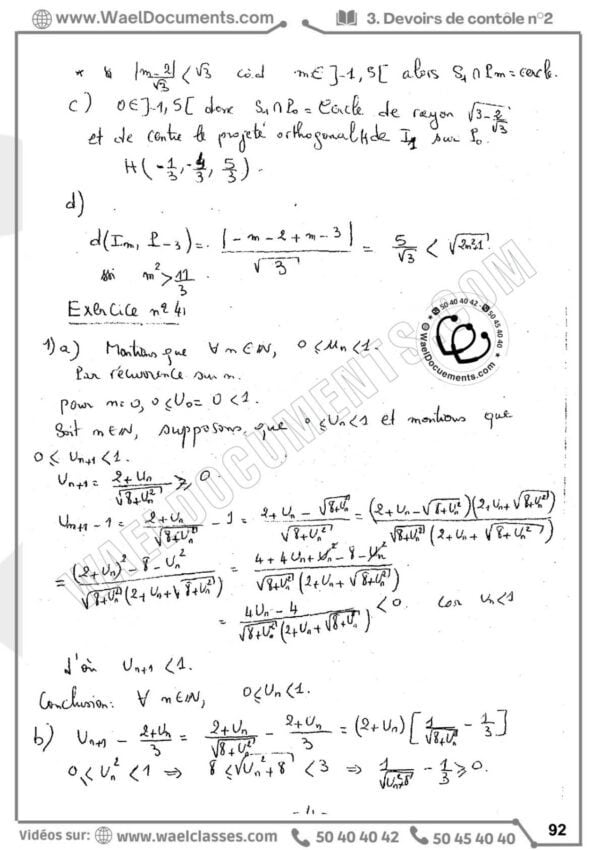 www.WaelDocuments.com
3. Devoirs de contôle n°2
|m-2|/√3 < √3 càd m∈]-1, 5[ alors S₁ ∩ Pm = cercle.
c) 0∈]-1, 5[ donc S₁ ∩ P₀ = Cercle de rayon √3-2/√3
et de centre le projeté orthogonal H de I₁ sur P₀.
H(-1/3, -4/3, 5/3).
d)
d(Im, P₋₃) = |-m-2+m-3|/√3 = 5/√3 <
ssi m² > 11/3
Exercice n° 4
1) a) Montrons que ∀ n∈ℕ, 0 ≤ Un < 1.
Par récurrence sur n.
pour n=0, 0 ≤ U₀ = 0 < 1.
Soit n∈ℕ, supposons que 0 ≤ Un < 1 et montrons que
0 ≤ Un+1 < 1.
Un+1 = 2+Un/√8+Un² ≥ 0.
Un+1 - 1 = 2+Un/√8+Un² - 1 = 2+Un - √8+Un²/√8+Un² = (2+Un - √8+Un²)(2+Un+√8+Un²)/√8+Un² (2+Un+√8+Un²)
= (2+Un)² - 8 - Un²/√8+Un² (2+Un+√8+Un²) = 4+4Un+Un²-8-Un²/√8+Un² (2+Un+√8+Un²)
= 4Un-4/√8+Un² (2+Un+√8+Un²) < 0 car Un < 1
d'où Un+1 < 1.
Conclusion: ∀ n∈ℕ, 0 ≤ Un < 1.
b) Un+1 - 2+Un/3 = 2+Un/√8+Un² - 2+Un/3 = (2+Un)[1/√8+Un² - 1/3]
0 ≤ Un² < 1 ⇒ 8 ≤ √Un²+8 < 3 ⇒ 1/√Un²+8 - 1/3 ≥ 0.
WAELDOCUMENTS.COM
50 40 40 42 - 50 45 40 40
@WaelDocuements.com
92
Vidéos sur: www.waelclasses.com 50 40 40 42 50 45 40 40